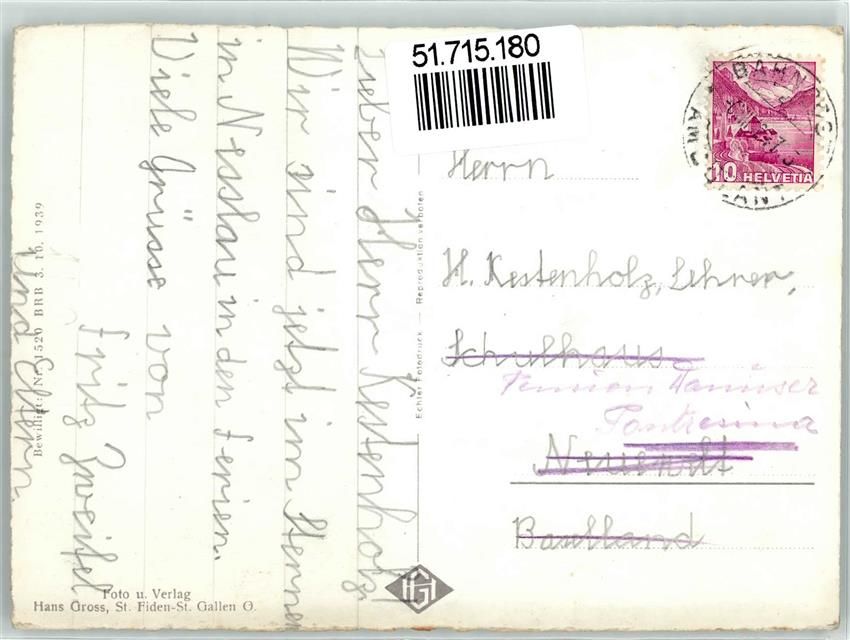 51.715.180
BAHN
10 HELVETIA
Lieber Herr Kestenholz!
Wir sind jetzt im Sternen
in Nesslau in den Ferien.
Viele Grüsse von
Fritz
und Eltern.
Herrn
H. Kestenholz, Lehrer,
Schulhaus
Pension
Pontresina
Baselland
Echter Fotodruck — Reproduktion verboten
Bewilligt: Nr. 1520 BRB 3. 10. 1939
Foto u. Verlag
Hans Gross, St. Fiden-St. Gallen O.
HG